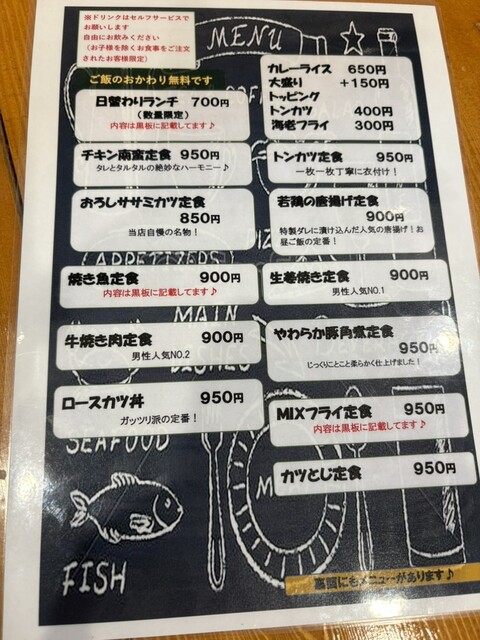 ※ドリンクはセルフサービスで
お願いします
自由にお飲みください
(お子様を除くお食事をご注文
されたお客様限定)
MENU
ご飯のおかわり無料です
日替わりランチ 700円
(数量限定)
内容は黒板に記載してます♪
カレーライス 650円
大盛り +150円
トッピング
トンカツ 400円
海老フライ 300円
チキン南蛮定食 950円
タレとタルタルの絶妙なハーモニー♪
トンカツ定食 950円
一枚一枚丁寧に衣付け!
おろしササミカツ定食
850円
当店自慢の名物!
若鶏の唐揚げ定食
900円
特製ダレに漬け込んだ人気の唐揚げ!お
昼ご飯の定番!
APPETIZERS
焼き魚定食 900円
内容は黒板に記載してます♪
生姜焼き定食 900円
男性人気NO.1
MAIN
DISHES
牛焼き肉定食 900円
男性人気NO.2
やわらか豚角煮定食
950円
じっくりことこと柔らかく仕上げました!
ロースカツ丼 950円
ガッツリ派の定番!
MIXフライ定食 950円
内容は黒板に記載してます♪
SEAFOOD
カツとじ定食 950円
FISH
裏面にもメニューがあります♪